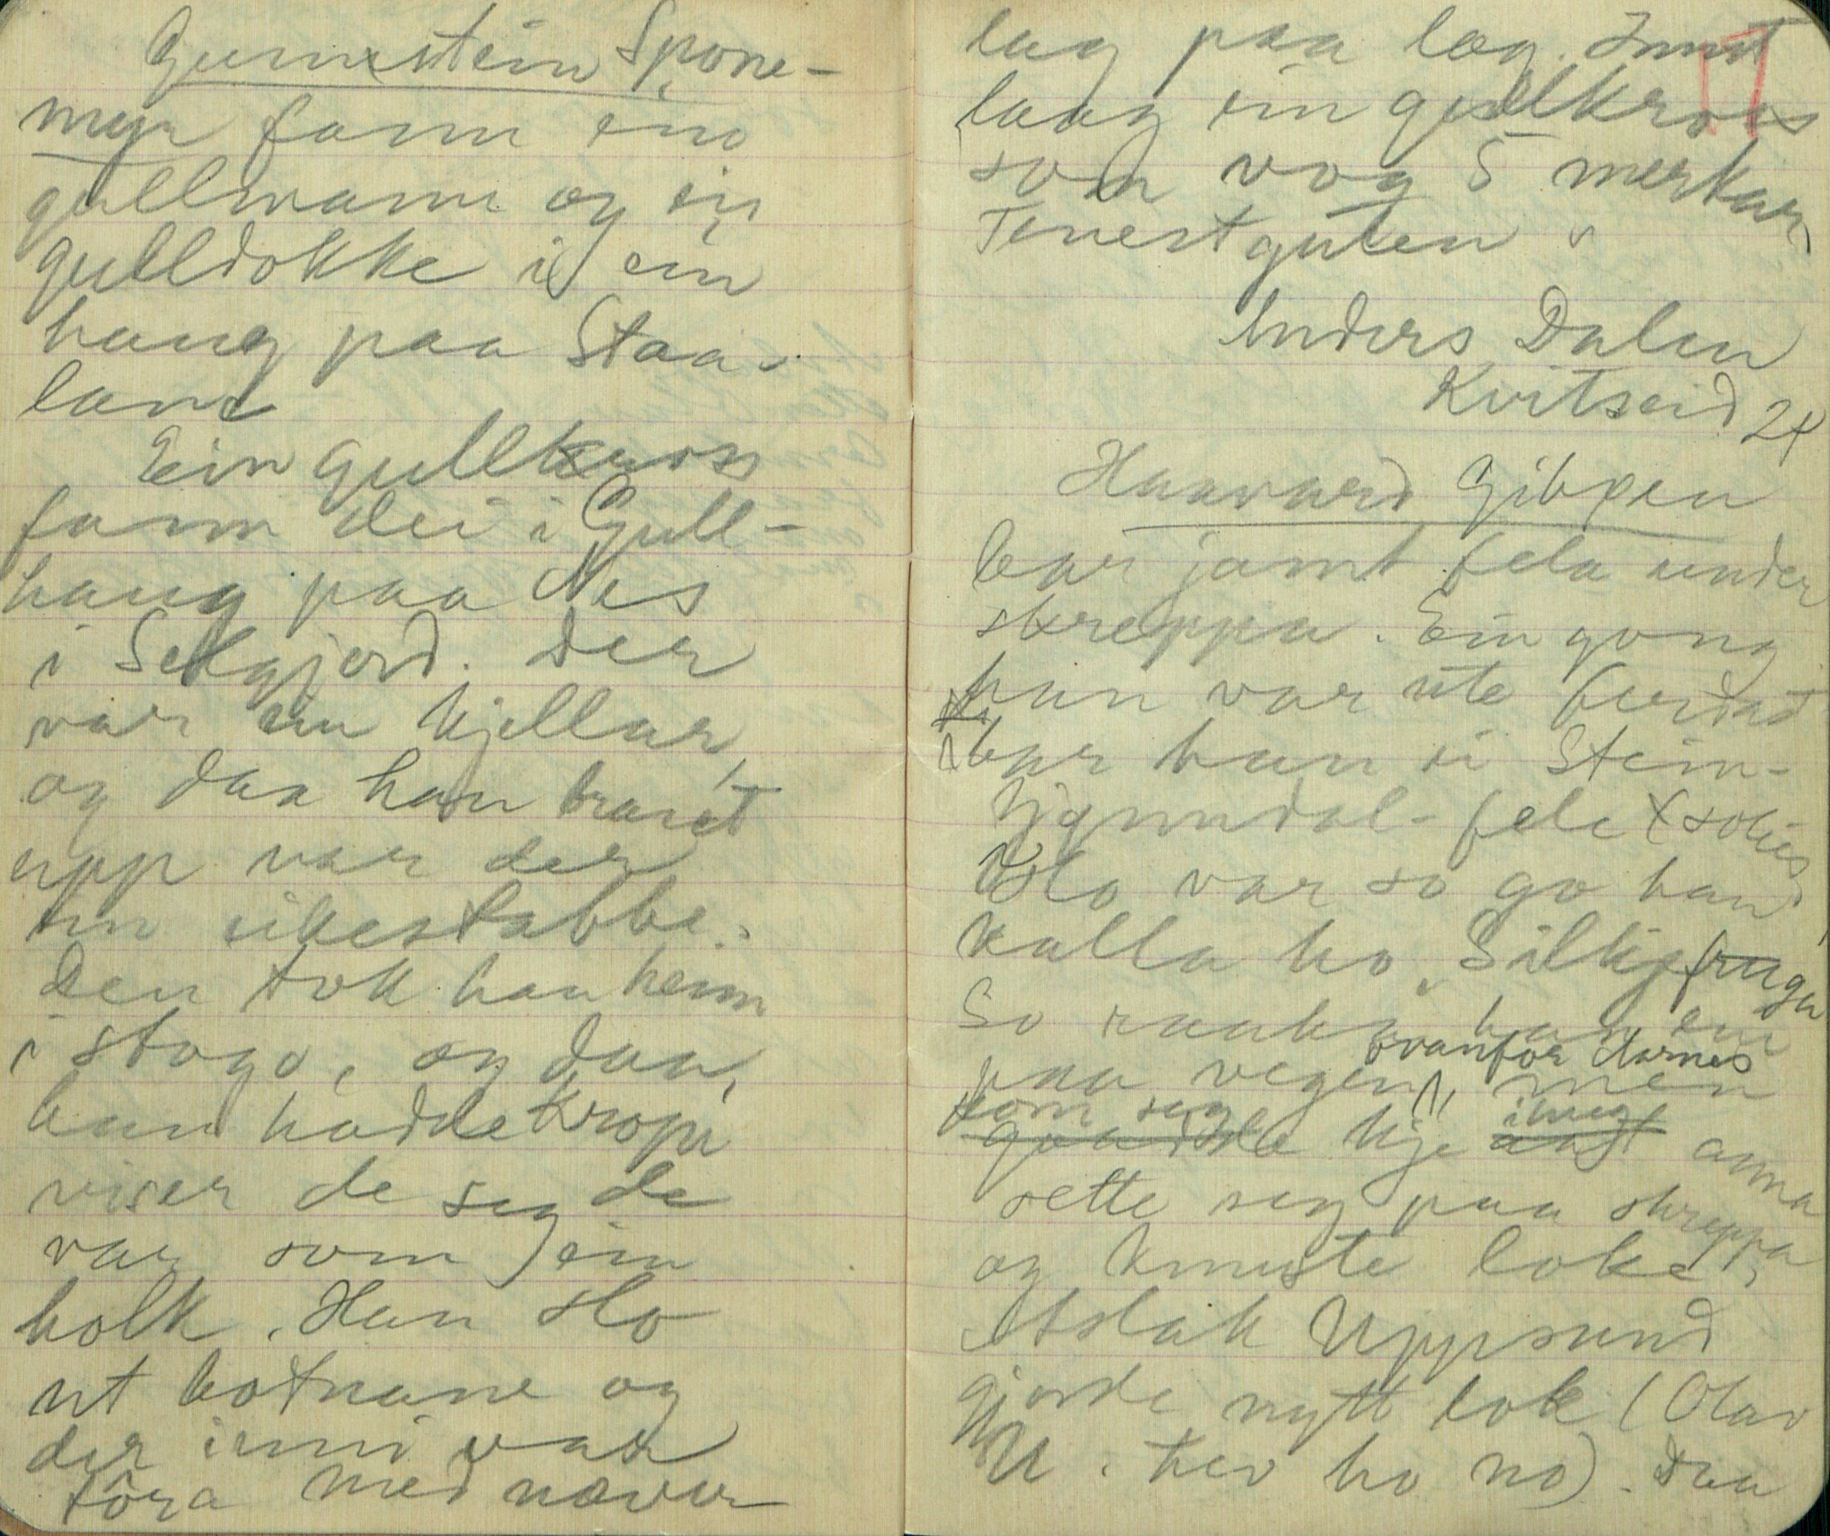 Gunnstein Spone-
myr fann ein
gullmann og ei
gulldokke i ein
haug paa Staa-
land
Ein gullkross
fann dei i Gull-
haug paa Nes
i Selgjord. Der
var ein kjellar,
og daa han braut
upp var der
ein eikestabbe.
Den tok han heim
i stogo, og daa
han hadde
viser de seg de
var som ein
holk. Han slo
ut botnane og
der inni var
fora med nævur
lag paa lag. Inst
laag ein gullkross
som vog 5 merkar
Tenestguten
Anders Dalen
Kvitseid 24
Haavard Gibøen
bar jamt fela under
skreppa. Ein gong
han var ute
bar han ei Stein-
fele
Ho var so go han
kalla ho "Silkjefruga
So raaka han ein
paa vegen ovanfor Aarnes, men
kom seg ikje imeg anna
sette seg paa skreppa
og knuste loket,
Aslak Uppsund
gjorde nytt lok (Olav
U. hev ho no). Daa